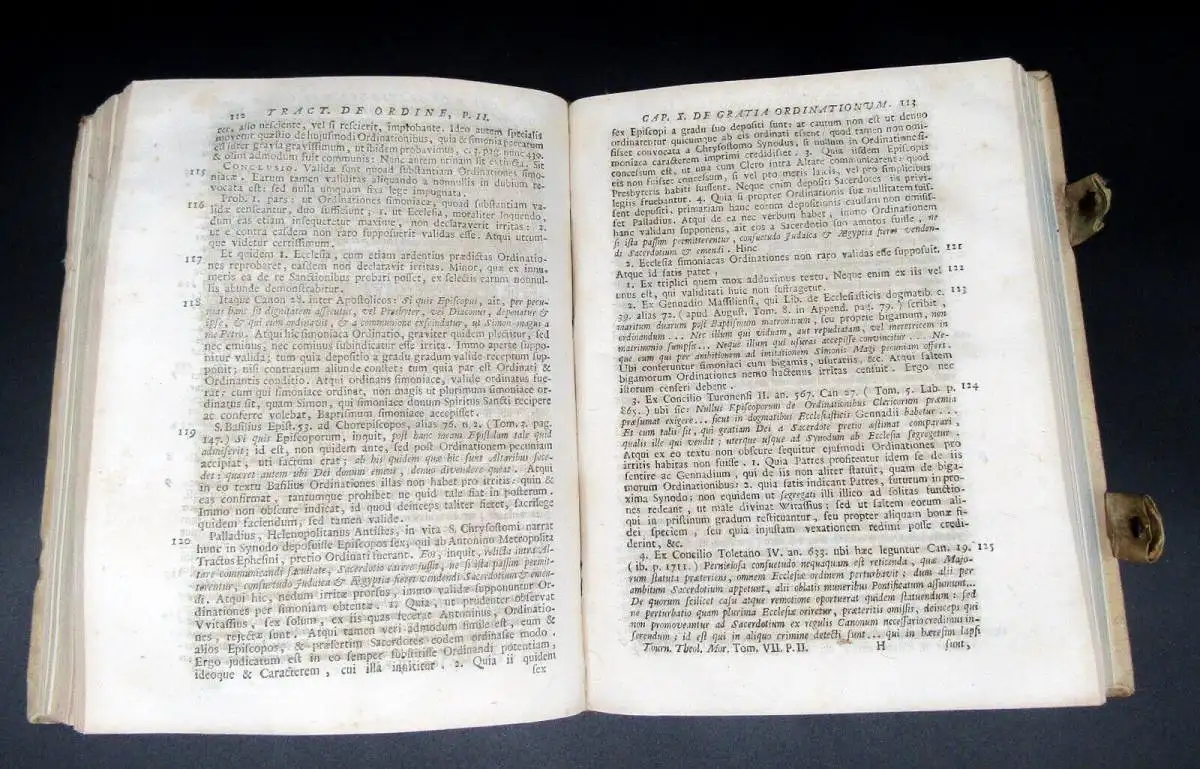 112 TRACT. DE ORDINE, P. II.
cer, alio nesciente, vel si rescierit, improbante. Ideo autem specialis
movetur quæstio de hujusmodi Ordinationibus, quia & simonia peccatum
est inter gravia gravissimum, ut ibidem probavimus, c. 3. pag. nunc 439.
& olim admodum fuit communis: Nunc autem utinam sit extincta. Sit
115 CONCLUSIO. Validæ sunt quoad substantiam Ordinationes simo-
niacæ. Earum tamen validitas aliquando a nonnullis in dubium re-
vocata est: sed nulla unquam fixa lege impugnata.
116 Prob. 1. pars: ut Ordinationes simoniacæ, quoad substantiam va-
lidæ censeantur, duo sufficiunt; 1. ut Ecclesia, moraliter loquendo,
cum eas etiam insequeretur maxime, non declaraverit irritas: 2.
ut e contra easdem non raro supposuerit validas esse. Atqui utrum-
que videtur certissimum.
117 Et quidem 1. Ecclesia, cum etiam ardentius prædictas Ordinatio-
nes reprobaret, easdem non declaravit irritas. Minor, quæ ex innu-
meris ea de re Sanctionibus probari posset, ex selectis earum nonnul-
lis abunde demonstrabitur.
118 Itaque Canon 28. inter Apostolicos: Si quis Episcopus, ait, per pecu-
nias hanc sit dignitatem assecutus, vel Presbyter, vel Diaconus, deponatur &
ipse, & qui eum ordinavit, & a communione exscindatur, ut Simon magus a
me Petro. Atqui hic simoniaca Ordinatio, graviter quidem plectitur, sed
nec eminus, nec cominus subindicatur esse irrita. Immo aperte suppo-
nitur valida; tum quia depositio a gradu gradum valide receptum sup-
ponit; nisi contrarium aliunde constet: tum quia par est Ordinati &
Ordinantis conditio. Atqui ordinans simoniace, valide ordinatus fue-
rat: cum qui simoniace ordinat, non magis ut plurimum simoniace or-
dinatus sit, quam Simon, qui simoniace donum Spiritus Sancti recipere
ac conferre volebat, Baptismum simoniace accepisset.
119 S. Basilius Epist. 53. ad Chorepiscopos, alias 76. n. 2. (Tom. 3. pag.
147.) Si quis Episcoporum, inquit, post hanc meam Epistolam tale quid
admiserit; id est, non quidem ante, sed post Ordinationem pecuniam
accipiat, uti factum erat; ab his quidem quæ hic sunt Altaribus sece-
det: quærat autem ubi Dei donum emens, denuo divendere queat. Atqui
in eo textu Basilius Ordinationes illas non habet pro irritis: quin &
eas confirmat, tantumque prohibet ne quid tale fiat in posterum.
Immo non obscure indicat, id quod deinceps taliter fieret, sacrilege
quidem faciendum, sed tamen valide.
120 Palladius, Helenopolitanus Antistes, in vita S. Chrysostomi narrat
hunc in Synodo deposuisse Episcopos sex, qui ab Antonino Metropolita
Tractus Ephesini, pretio Ordinati fuerant. Eos, inquit, relicta intra Al-
tare communicandi facultate, Sacerdotio carere jussit, ne si ista passim permit-
terentur, consuetudo Judaica & Ægyptia fieret vendendi Sacerdotium & emen-
di. Atqui hic, nedum irritæ prorsus, immo validæ supponuntur Or-
dinationes per simoniam obtentæ. 1. Quia, ut prudenter observat
Vvitassius, sex solum, ex iis quas fecerat Antoninus, Ordinatio-
nes, rejectæ sunt. Atqui tamen veri admodum simile est, eum &
alios Episcopos, & præsertim Sacerdotes eodem ordinasse modo.
Ergo judicatum est in eo semper substitisse Ordinandi potentiam,
ideoque & Caracterem, cui illa innititur. 2. Quia ii quidem
sex
CAP. X. DE GRATIA ORDINATIONUM. 113
sex Episcopi a gradu suo depositi sunt: at cautum non est ut denuo
ordinarentur quicumque ab eis ordinati essent: quod tamen non omi-
sisset convocata a Chrysostomo Synodus, si nullum in Ordinatione si-
moniaca caracterem imprimi credidisset. 3. Quia iisdem Episcopis
concessum est, ut una cum Clero intra Altare communicarent: quod
eis non fuisset concessum, si vel pro meris laicis, vel pro simplicibus
Presbyteris habiti fuissent. Neque enim depositi Sacerdotes iis privi-
legiis fruebantur. 4. Quia si propter Ordinationis suæ nullitatem fuis-
sent depositi, primariam hanc eorum depositionis causam non omisis-
set Palladius. Atqui de ea nec verbum habet, immo Ordinationem
hanc validam supponens, ait eos a Sacerdotio suo amotos fuisse, ne
si ista passim permitterentur, consuetudo Judaica & Ægyptia fieret venden-
di Sacerdotium & emendi. Hinc
2. Ecclesia simoniacas Ordinationes non raro validas esse supposuit. 121
Atque id satis patet,
1. Ex triplici quem mox adduximus textu. Neque enim ex iis vel 122
unus est, qui validitati huic non suffragetur.
2. Ex Gennadio Massiliensi, qui Lib. de Ecclesiasticis dogmatib. c. 123
39. alias 72. (apud August. Tom. 8. in Append. pag. 79.) scribit,
maritum duarum post Baptismum matronarum, seu proprie bigamum, non
ordinandum... Nec illum qui viduam, aut repudiatam, vel meretricem in
matrimonio sumpsit... Neque illum qui usuras accepisse convincitur... Ne-
que eum qui per ambitionem ad imitationem Simonis Magi pecuniam offert.
Ubi conferuntur simoniaci cum bigamis, usurariis, &c. Atqui saltem
bigamorum Ordinationes nemo hactenus irritas censuit. Ergo nec
istorum censeri debent.
3. Ex Concilio Turonensi II. an. 567. Can 27. (Tom. 5. Lab. p. 124
865.) ubi sic: Nullus Episcoporum de Ordinationibus Clericorum præmia
præsumat exigere... sicut in dogmatibus Ecclesiasticis Gennadii habetur...
Et cum talis sit, qui gratiam Dei a Sacerdote pretio æstimat comparari,
qualis ille qui vendit; uterque usque ad Synodum ab Ecclesia segregetur.
Atqui ex eo textu non obscure sequitur ejusmodi Ordinationes pro
irritis habitas non fuisse. 1. Quia Patres profitentur idem se de iis
sentire ac Gennadium, qui de iis non aliter statuit, quam de biga-
morum Ordinationibus: 2. quia satis indicant Patres, futurum in pro-
xima Synodo; non equidem ut segregati illi illico ad solitas functio-
nes redeant, ut male divinat Witassius; sed ut saltem eorum ali-
qui in pristinum gradum restituantur, seu propter aliquam bonæ fi-
dei speciem, seu quia injustam vexationem redimi posse credi-
derint, &c.
4. Ex Concilio Toletano IV. an. 633. ubi hæc leguntur Can. 19. 125
(ib. p. 1711.) Perniciosa consuetudo nequaquam est reticenda, quæ Majo-
rum statuta præteriens, omnem Ecclesiæ ordinem perturbavit; dum alii per
ambitum Sacerdotium appetunt, alii oblatis muneribus Pontificatum assumunt...
De quorum scilicet casu atque remotione oportuerat quidem statuendum: sed
ne perturbatio quam plurima Ecclesiæ oriretur, præteritis omissis, deinceps qui
non promoveantur ad Sacerdotium ex regulis Canonum necessario credimus in-
serendum; id est qui in aliquo crimine detecti sunt... qui in hæresim lapsi
Tourn. Theol. Mor. Tom. VII. P. II. H sunt,